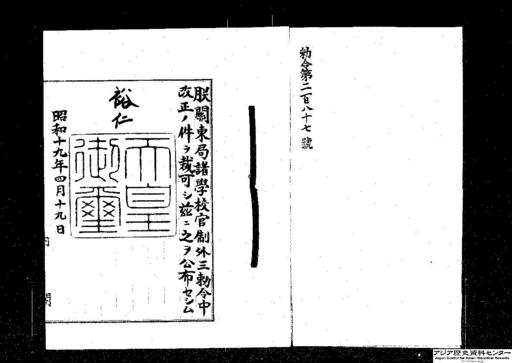 勅令第二百八十七號
朕關東局諸學校官制外三勅令中
改正ノ件ヲ裁可シ茲ニ之ヲ公布セシム
裕仁
天皇御璽
昭和十九年四月十九日
内閣
アジア歴史資料センター
Japan Center for Asian Historical Records